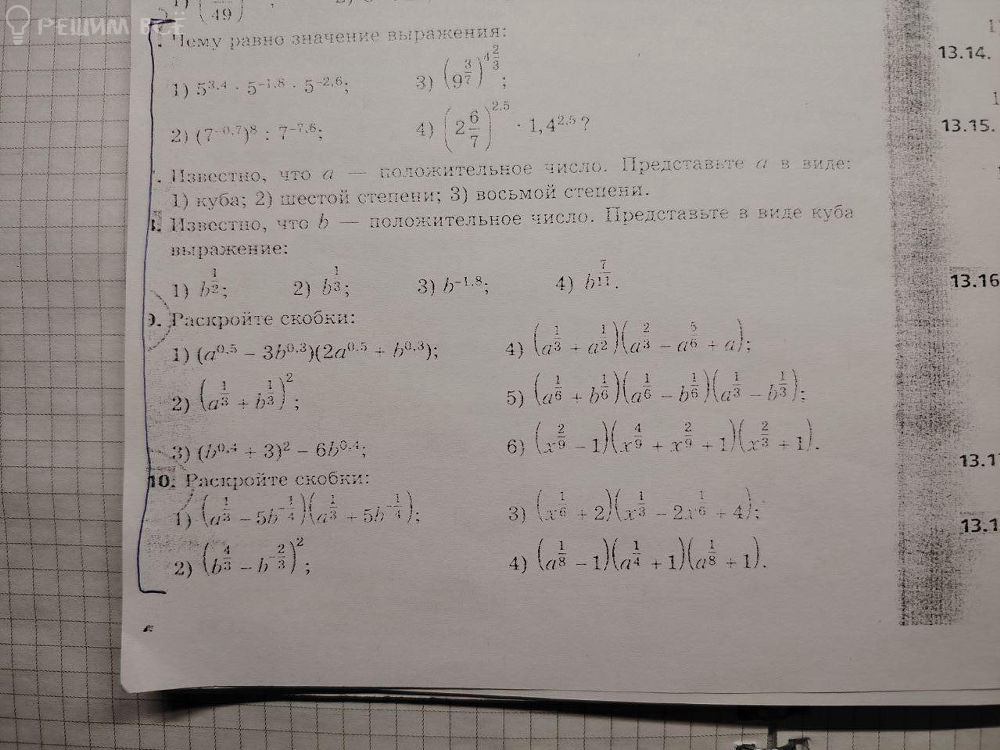 РЕШИМ ВСЁ
49
. Чему равно значение выражения:
1) 5^{3,4} · 5^{-1,8} · 5^{-2,6}; 3) (9^{3/7})^{4 2/3};
2) (7^{-0,7})^8 : 7^{-7,6}; 4) (2 6/7)^{2,5} · 1,4^{2,5}?
. Известно, что a — положительное число. Представьте a в виде:
1) куба; 2) шестой степени; 3) восьмой степени.
Известно, что b — положительное число. Представьте в виде куба
выражение:
1) b^{1/2}; 2) b^{1/3}; 3) b^{-1,8}; 4) b^{7/11}.
9. Раскройте скобки:
1) (a^{0,5} − 3b^{0,3})(2a^{0,5} + b^{0,3}); 4) (a^{1/3} + a^{1/2})(a^{2/3} − a^{5/6} + a);
2) (a^{1/3} + b^{1/3})^2; 5) (a^{1/6} + b^{1/6})(a^{1/6} − b^{1/6})(a^{1/3} − b^{1/3});
3) (b^{0,4} + 3)^2 − 6b^{0,4}; 6) (x^{2/9} − 1)(x^{4/9} + x^{2/9} + 1)(x^{2/3} + 1).
10. Раскройте скобки:
1) (a^{1/3} − 5b^{-1/4})(a^{1/3} + 5b^{-1/4}); 3) (x^{1/6} + 2)(x^{1/3} − 2x^{1/6} + 4);
2) (b^{4/3} − b^{-2/3})^2; 4) (a^{1/8} − 1)(a^{1/4} + 1)(a^{1/8} + 1).
13.14.
13.15.
13.16
13.1
13.1